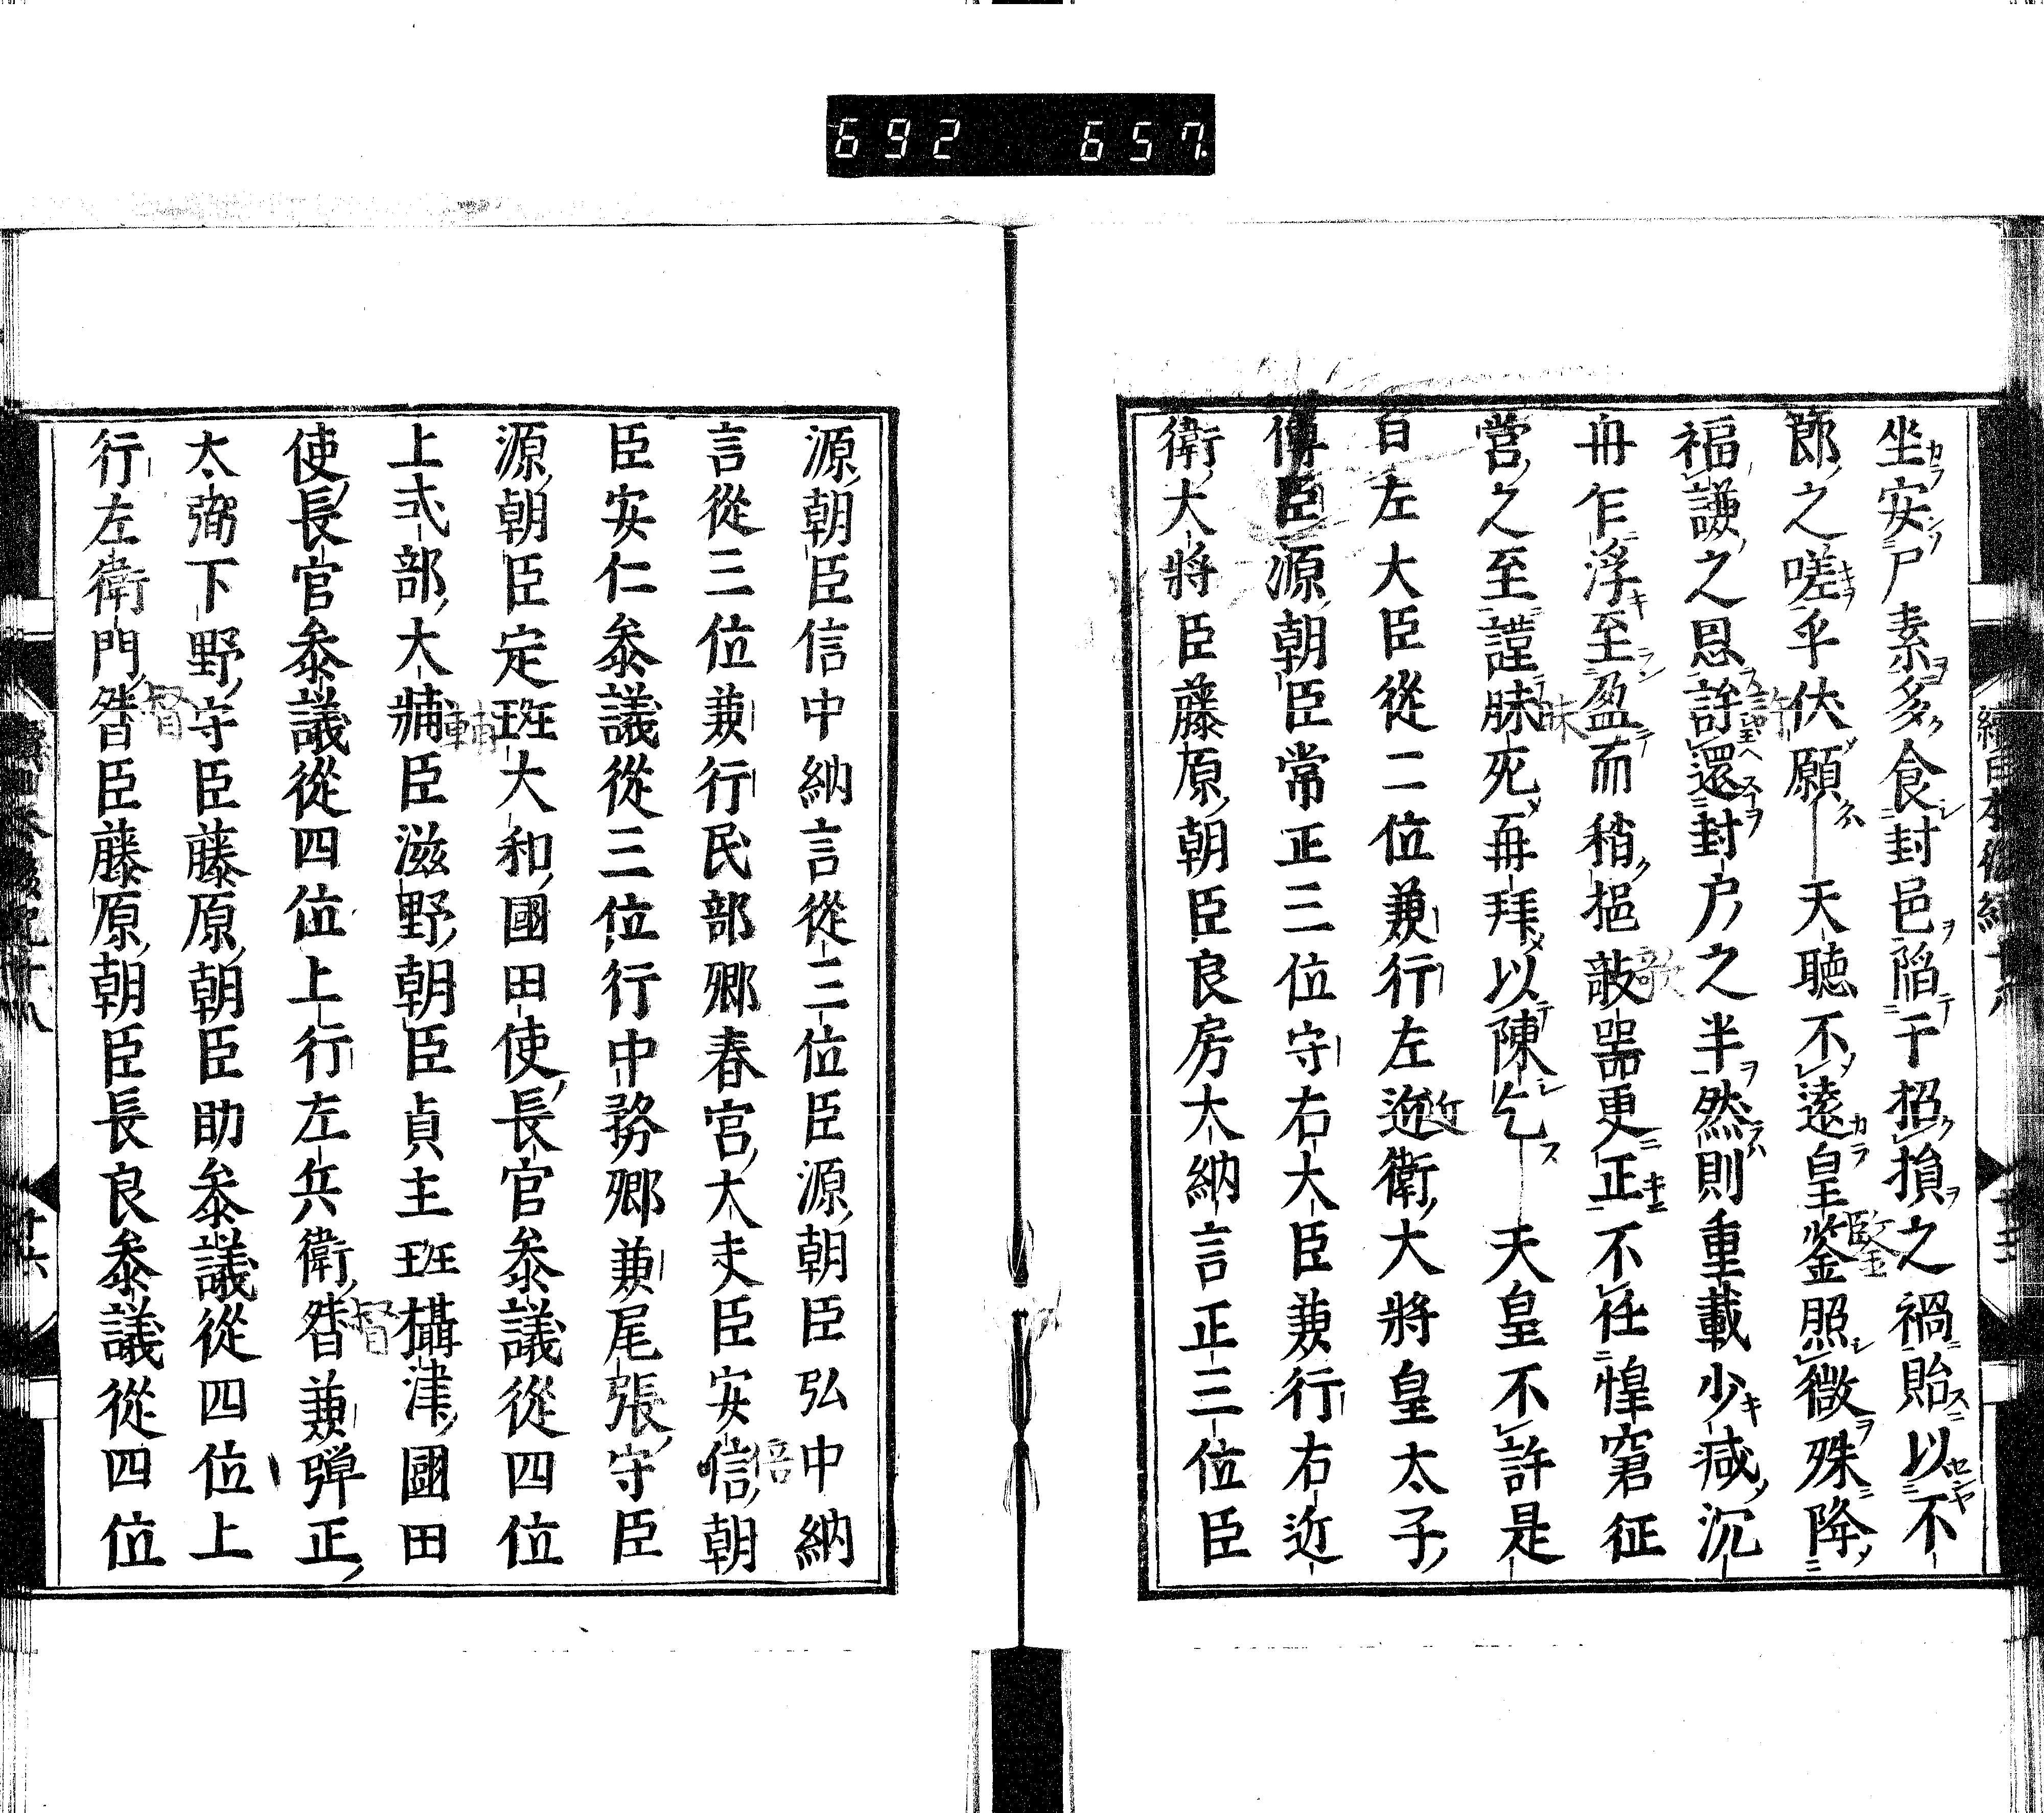 692 657
坐安尸素多食封邑陷于招損之禍貽以不
節之嗟乎伏願天聴不遠皇鉴照微殊降
福謙之恩許還封戸之半然則重載少减沉
舟乍浮至盈而稍挹敧噐更正不任惶窘征
営之至謹昧死再拜以陳乞天皇不許是
日左大臣從二位兼行左近衛大將皇太子
傅臣源朝臣常正三位守右大臣兼行右近
衛大將臣藤原朝臣良房大納言正三位臣
源朝臣信中納言從三位臣源朝臣弘中納
言從三位兼行民部卿春宮大夫臣安信朝
倍
臣安仁參議從三位行中務卿兼尾張守臣
源朝臣定班大和國田使長官參議從四位
上式部大輔臣滋野朝臣貞主班攝津國田
輔
使長官參議從四位上行左兵衛督兼彈正
督
大弼下野守臣藤原朝臣助參議從四位上
行左衛門督臣藤原朝臣長良參議從四位
督